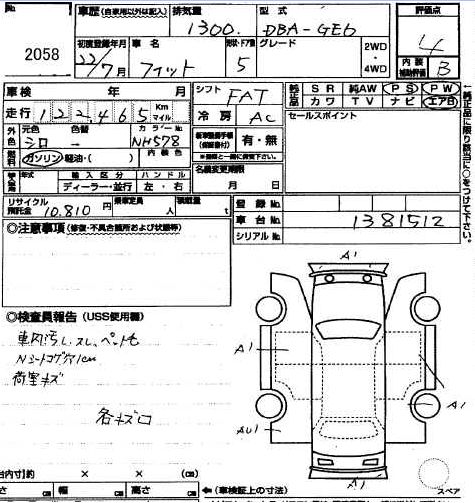 No 2058
車歴 (自家用以外は記入)
排気量 1300
型式 DBA-GE6
評価点 4
内装補助評価 B
初度登録年月 22/7月
車名 フィット
形状・ドア数 5
グレード
2WD・4WD
車検 年 月
シフト FAT
純正品 SR 純AW PS PW
カワ TV ナビ エアB
↑純正品に限り該当に○をつけて下さい。
走行 122,465 Km マイル
冷房 AC
セールスポイント
外色 元色 シロ 色替 ー
カラーNo NH578
内装色
燃料 ガソリン・軽油・( )
有・無
※車歴と一緒に保管下さい。
名義変更期限 月 日
年式 輸入区分 ハンドル
ディーラー・並行 左・右
リサイクル預託金 10,810 円
乗車定員 人
積載量 t
登録No
車台No 1381512
シリアルNo
◎注意事項 (修復・不具合箇所および状態等)
◎検査員報告 (USS使用欄)
車内汚し、スレ、ペット毛
Nシートコゲ穴1cm
荷室キズ
各キズロ
A1
A1
A1
A1
AU1
A1
台内寸)約 × × (cm)
さ cm 幅 cm 高さ cm ←(車検証上の寸法)
スペア